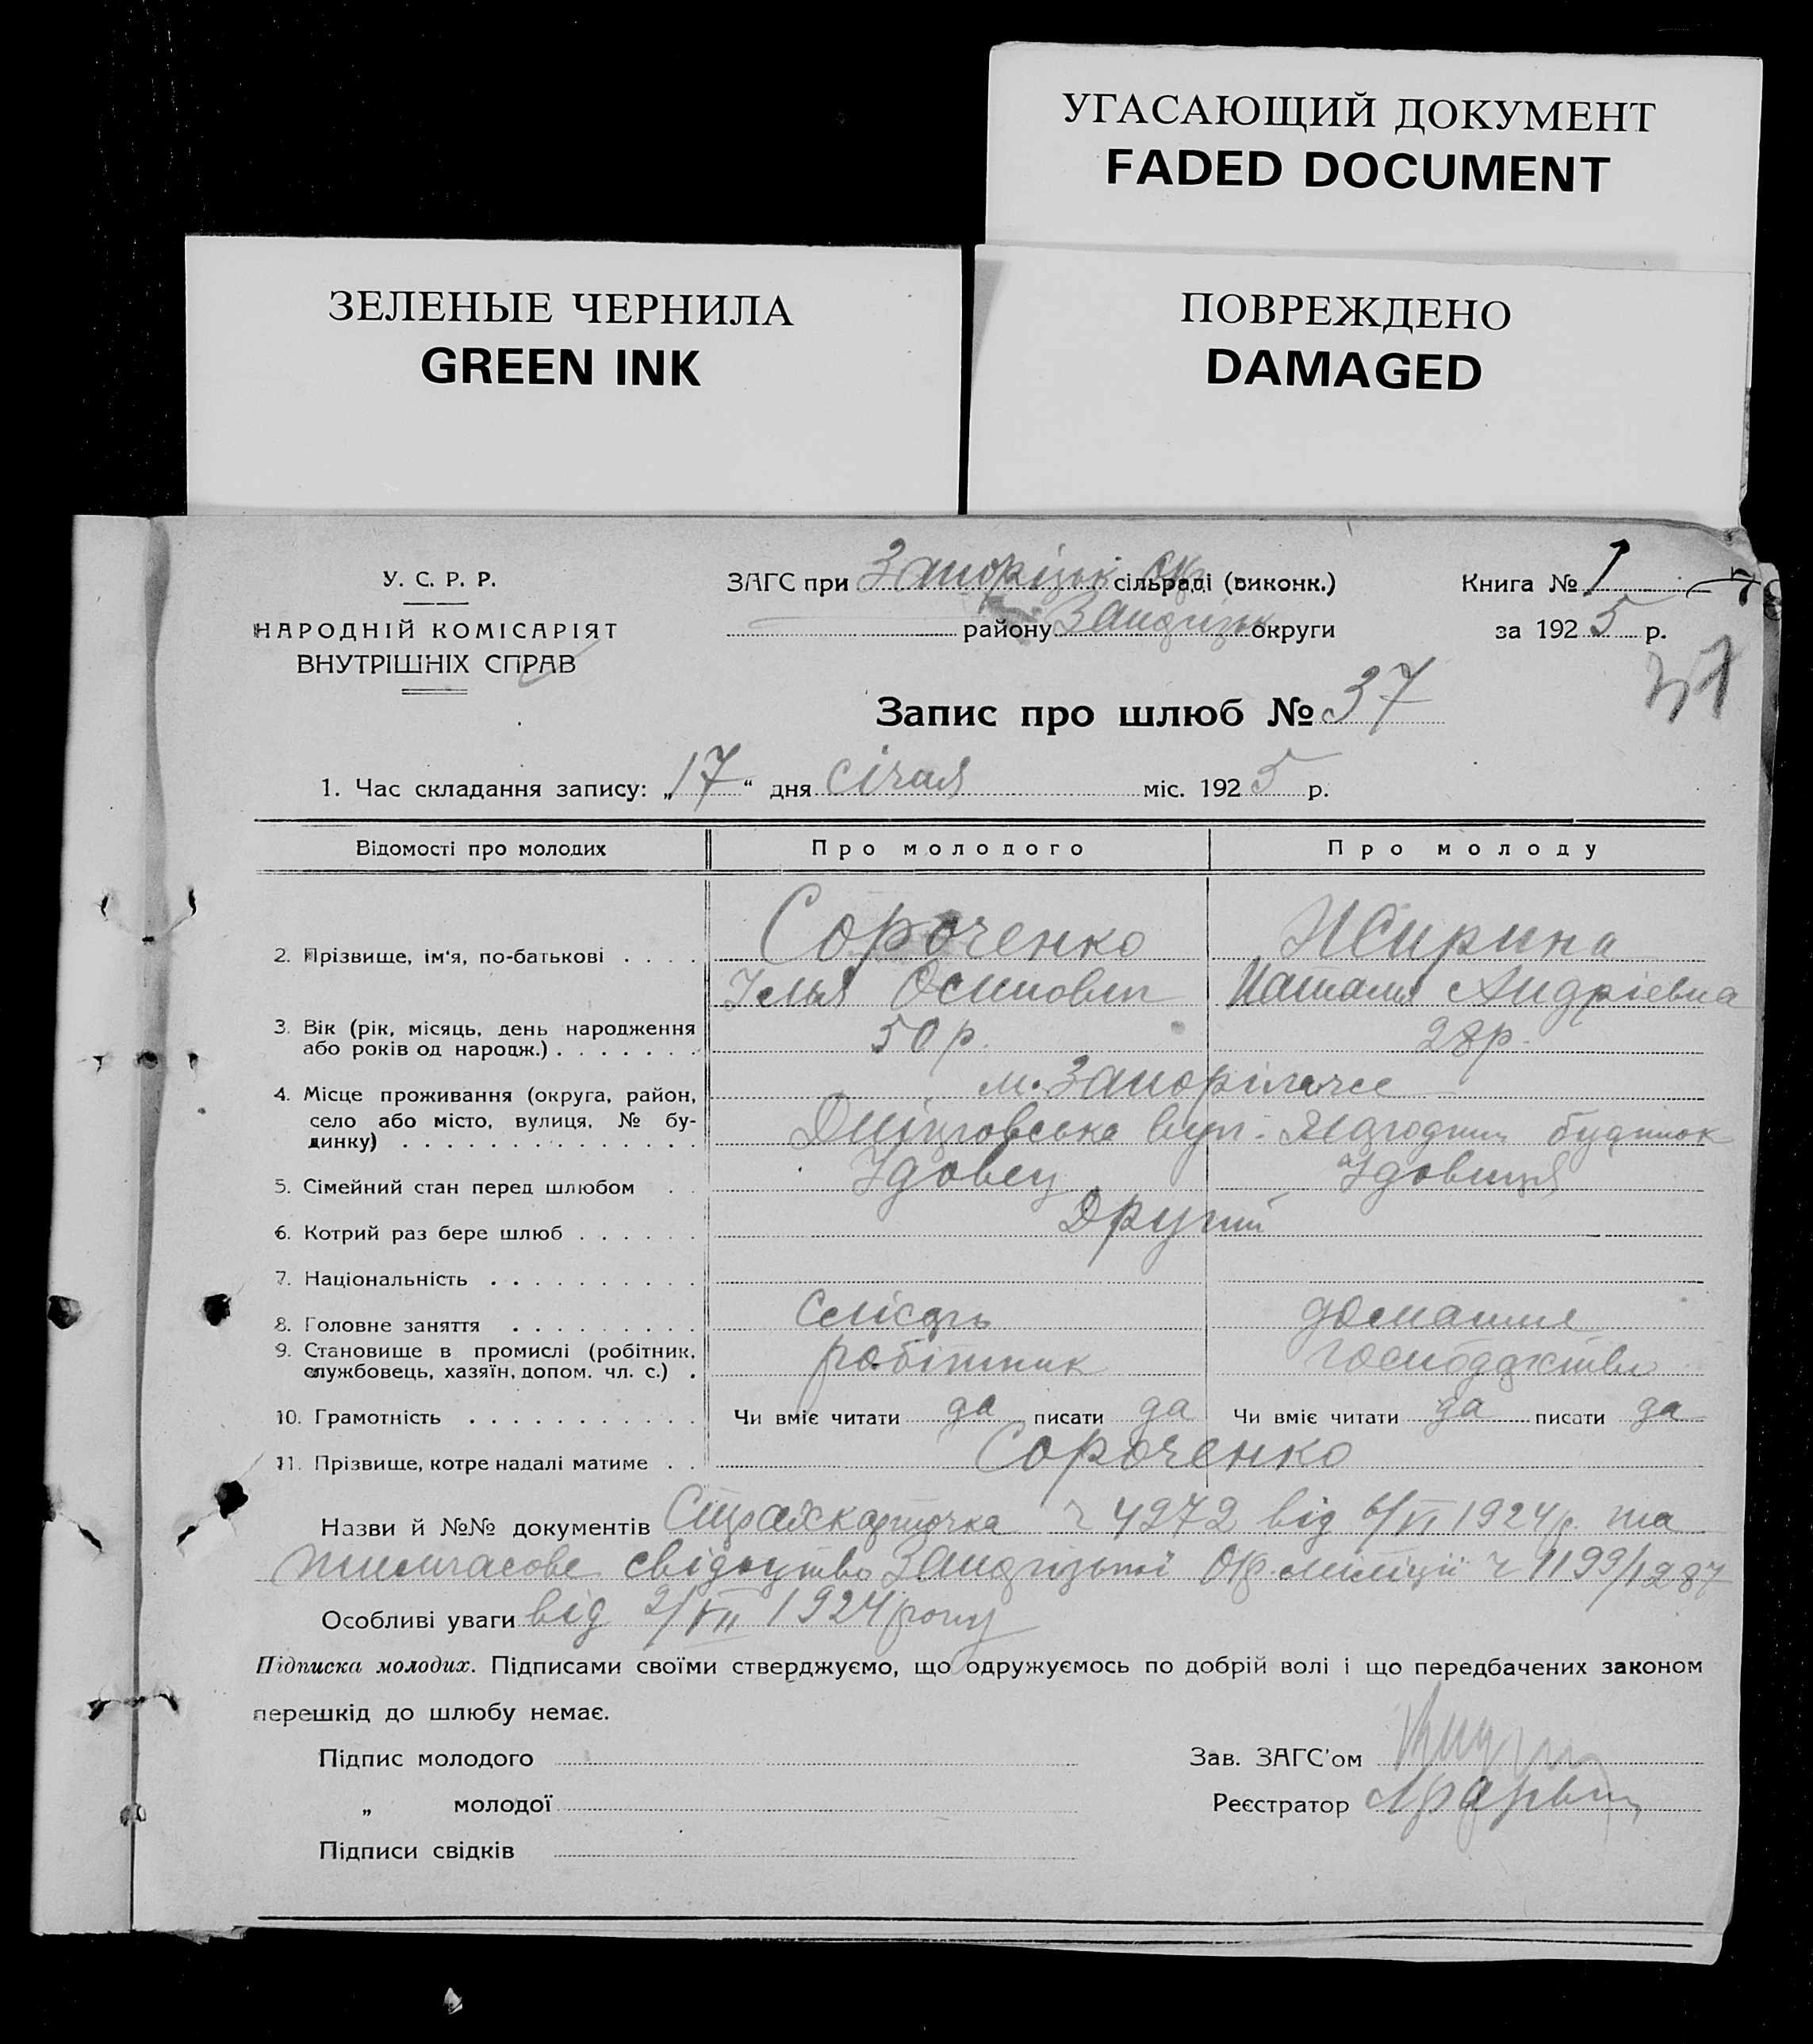 УГАСАЮЩИЙ ДОКУМЕНТ
FADED DOCUMENT
ЗЕЛЕНЫЕ ЧЕРНИЛА
GREEN INK
ПОВРЕЖДЕНО
DAMAGED
У. С. Р. Р.
НАРОДНІЙ КОМІСАРІЯТ
ВНУТРІШНІХ СПРАВ
ЗАГС при Запоріzьк окр сільраді (виконк.)
району Запоріzьк округи
Книга № 1
за 1925 р.
37
Запис про шлюб № 37
1. Час складання запису: „17“ дня січня міс. 1925 р.
Відомості про молодих Про молодого Про молоду
2. Прізвище, ім'я, по-батькові . . . . Сороченко
Ілья Осипович Наталія Андрієвна
3. Вік (рік, місяць, день народження
або років од народж.) . . . . . . . 50 р. 28 р.
м. Запоріжжє
4. Місце проживання (округа, район,
село або місто, вулиця, № бу-
динку) . . . . . . . . . . . . . . вул. будинок
5. Сімейний стан перед шлюбом . . Удовец Удовиця
6. Котрий раз бере шлюб . . . . . . Другий
7. Національність . . . . . . . . . .
8. Головне заняття . . . . . . . . . Слісарь домашнє
9. Становище в промислі (робітник,
службовець, хазяїн, допом. чл. с.) . робітник господарство
10. Грамотність . . . . . . . . . . . Чи вміє читати да писати да Чи вміє читати да писати да
11. Прізвище, котре надалі матиме . . Сороченко
Назви й №№ документів Страхкарточка ч 4272 від 6/VI 1924 р. та
тимчасове свідоцтво Запорізької Окр. міліції ч 1199/1287
Особливі уваги від 2/VII 1924 року
Підписка молодих. Підписами своїми стверджуємо, що одружуємось по добрій волі і що передбачених законом
перешкід до шлюбу немає.
Підпис молодого Зав. ЗАГС'ом
„ молодої Реєстратор
Підписи свідків